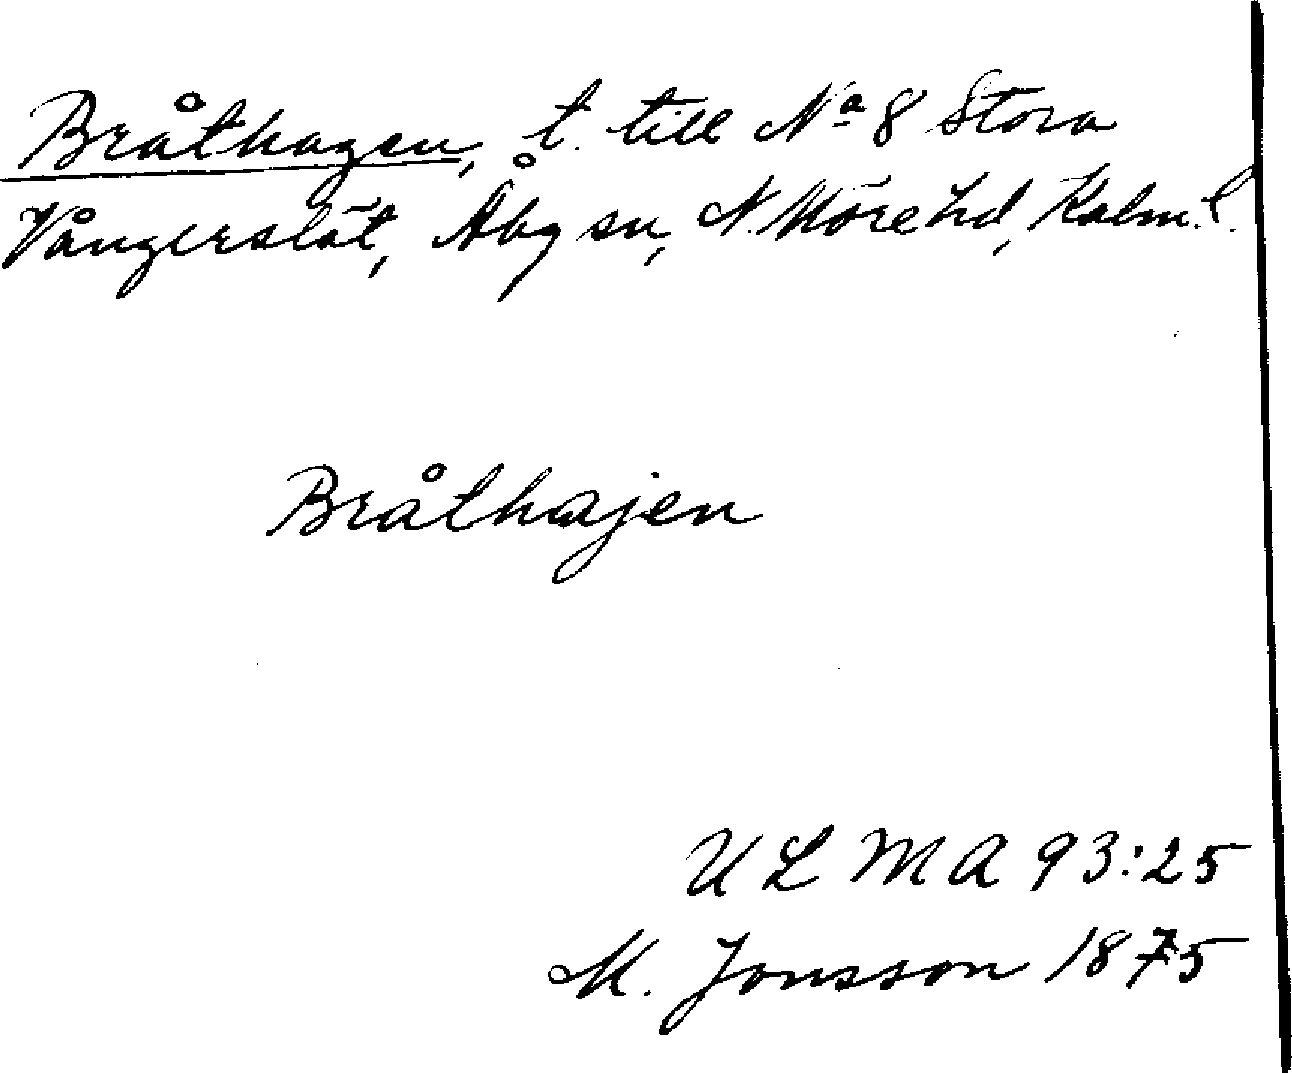 Bråthagen, t. till Na 8 Stora
Vångerslät, Åby sn, N. Möre hd, Kalm. l.
Bråthajen
ULMA 93:25
M. Jonsson 1875